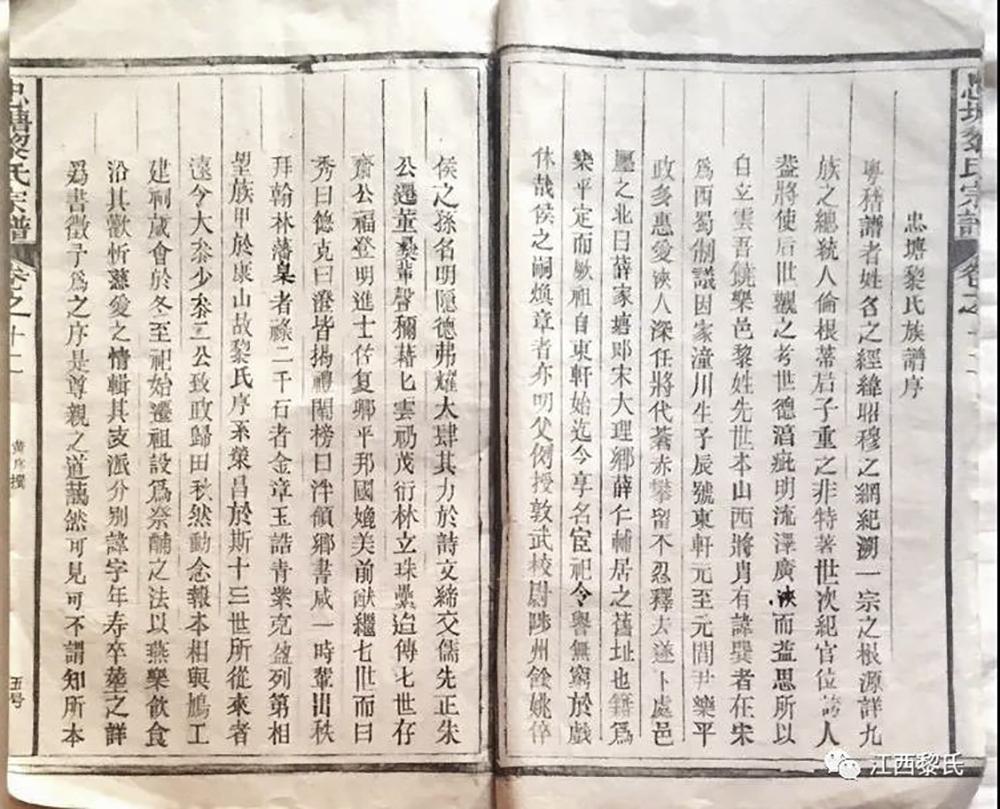 忠塘黎氏族譜序
粵稽譜者姓名之經緯昭穆之綱紀溯一宗之根源詳九
族之總統人倫根蒂后子重之非特著世次紀官位誇人
益將使后世觀之考世德滔疵明流澤廣浹而益思所以
自立雲吾饒樂邑黎姓先世本山西將肖有諱巽者在宋
為西蜀制議因家潼川生子辰號東軒元至元間尹樂平
政多惠愛浹人深任將代蒼赤攀留不忍釋去遂卜處邑
壥之北曰薛家塘即宋大理鄉薛仁輔居之舊址也籍爲
樂平定而厥祖自東軒始迄今享名宦祀令譽無窮於戲
休哉侯之嗣煥章者亦明父例授敦武校尉陟州餘姚倅
侯之孫名明隱德弗耀大肆其力於詩文締交儒先正朱
公遷董彝輩聲彌藉匕雲礽茂衍林立珠纍迨傳七世存
齋公福登明進士仵复卿平邦國媲美前猷繼七世而曰
秀曰德克曰澄皆揭禮闈榜曰泮領鄉書咸一時輩出秩
拜翰林藩臬者祿二千石者金章玉誥青業克盈列第相
望族甲於康山故黎氏序系榮昌於斯十三世所從來者
遠今大叅少叅二公致政歸田秋然動念報本相與鳩工
建祠歲會於冬至祀始遷祖設爲祭酺之法以燕樂飲食
沿其歡忻慈愛之情輯其支派分別諱字年寿卒塟之詳
爲書徵予爲之序是尊親之道藹然可見可不謂知所本
忠塘黎氏宗譜
卷之十一
黄序撰
五号
忠塘黎氏宗譜
卷之十一
江西黎氏